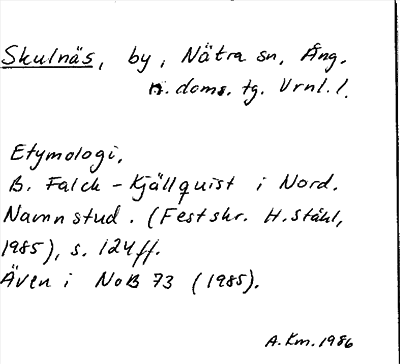 Skulnäs, by, Nätra sn, Ång.
n. doms. tg. Vrnl. l.
Etymologi.
B. Falck-Kjällquist i Nord.
Namnstud. (Festskr. H. Ståhl,
1985), s. 124 ff.
Även i NoB 73 (1985).
A. Km. 1986